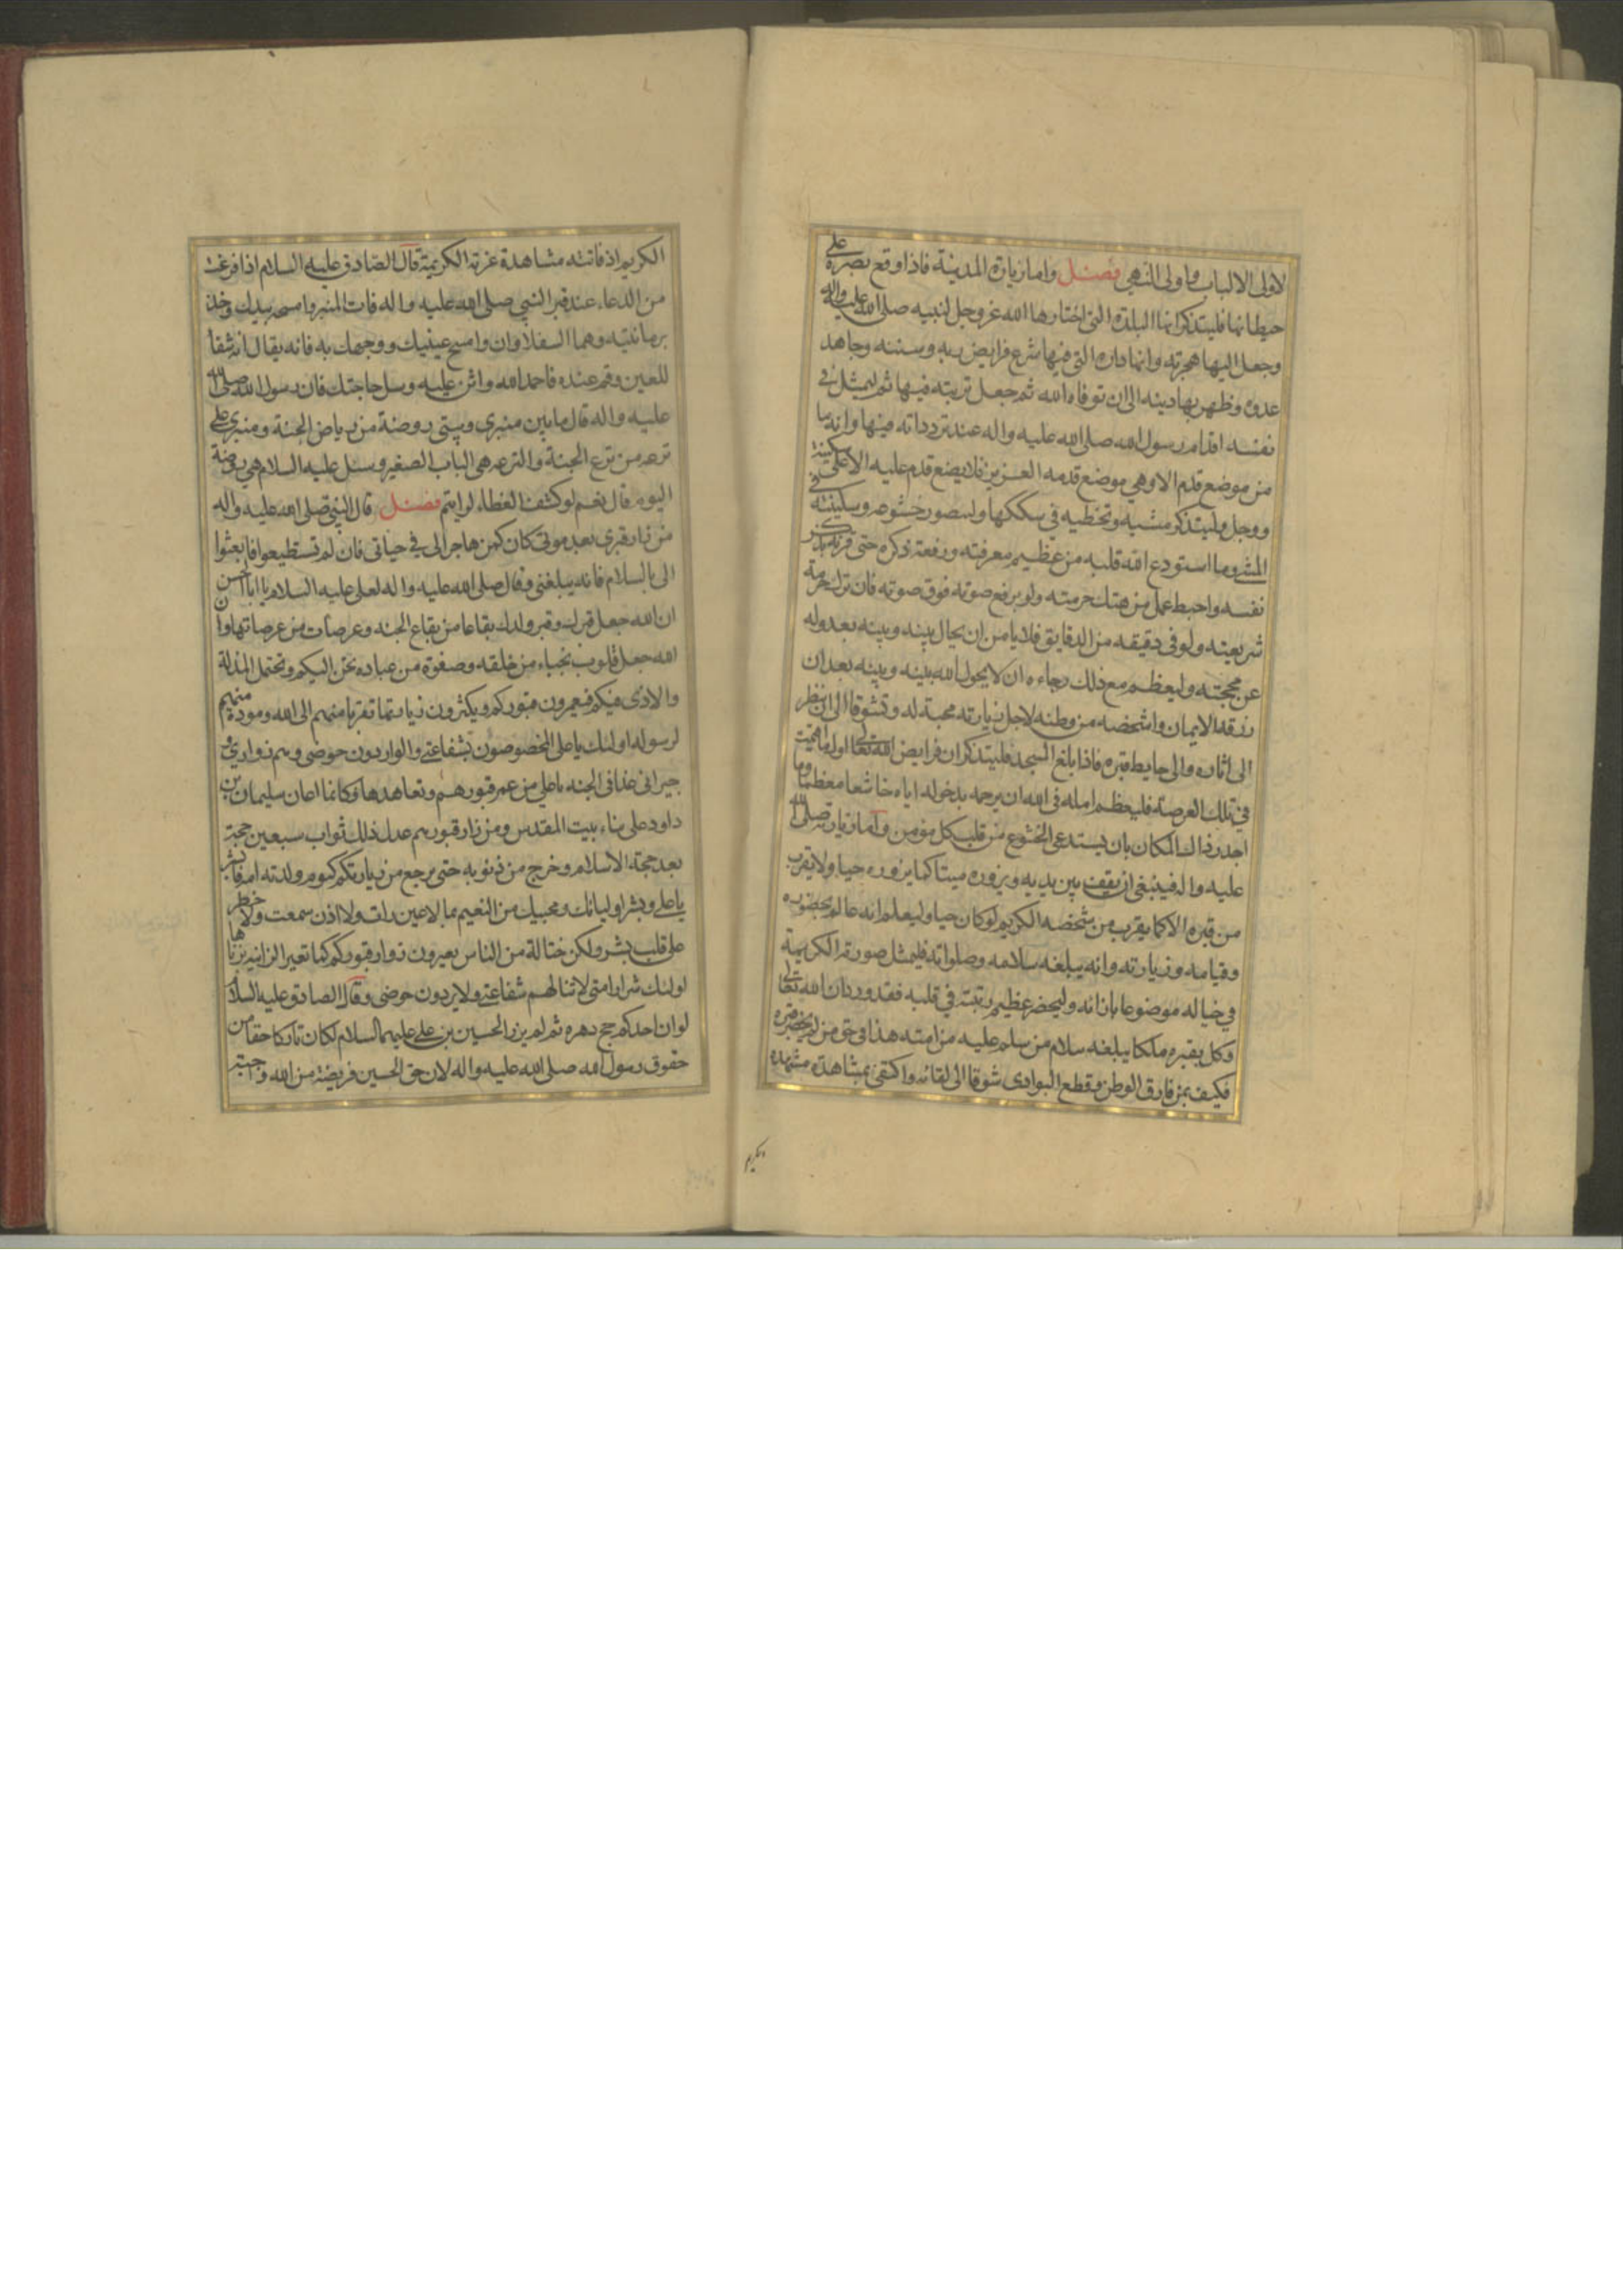 لاولى الالباب واولى النهى فصل واما زيارة المدينة فاذا وقع بصره على
حيطانها فليتذكر انها البلدة التى اختارها الله عز وجل لنبيه صلى الله عليه واله
وجعل اليها هجرته وانها داره التى فيها شرع فرايض ربه وسننه وجاهد
عدوه وظهر بها دينه الى ان توفاه الله ثم جعل تربته فيها ثم ليمثل فى
نفسه اقدام رسول الله صلى الله عليه واله عند تردداته فيها وانه ما
من موضع قدم الا وهى موضع قدمه العزيز فلا يضع قدم عليه الا على سكينة
ووجل وليتذكر مشيه وتخطيه فى سككها وليتصور خشوعه وسكينته فى
المشى وما استودع الله قلبه من عظيم معرفته ورفعة ذكره حتى قرنه بذكر
نفسه واحبط عمل من هتك حرمته ولو برفع صوته فوق صوته فان ترك حرمة
شريعته ولو فى دقيقه من الدقايق فلا يامن ان يحال بينه وبينه بعدوله
عن محجته وليعظم مع ذلك رجاءه ان لا يحول الله بينه وبينه بعد ان
رزقه الايمان واشخصه من وطنه لاجل زيارته محبة له وتشوقا الى ان ينظر
الى اثاره والى حايط قبره فاذا بلغ المسجد فليتذكر ان فرايض الله تعالى اول ما اقيمت
فى تلك العرصة فليعظم امله فى الله ان يرحمه بدخوله اياه خاشعا معظما وما
اجدر ذلك المكان بان يستدعى الخشوع من قلب كل مؤمن واما زيارته صلى الله
عليه واله فينبغى ان يقف بين يديه ويزوره ميتا كما يزوره حيا ولا يقرب
من قبره الا كما يقرب من شخصه الكريم لو كان حيا وليعلم انه عالم بحضوره
وقيامه وزيارته وانه يبلغه سلامه وصلواته فليمثل صورته الكريمة
فى خياله موضوعا بازائه وليحضر عظيم رتبته فى قلبه فقد ورد ان الله تعالى
وكل بقبره ملكا يبلغه سلام من سلم عليه من امته هذا فى حق من لم يحضر قبره
فكيف بمن فارق الوطن وقطع البوادى شوقا الى لقائه واكتفى بمشاهدة مشهده
الكريم
الكريم اذ فاتته مشاهدة غرته الكريمة قال الصادق عليه السلام اذا فرغت
من الدعاء عند قبر النبى صلى الله عليه واله فات المنبر وامسحه بيدك وخذ
برمانتيه وهما السفلاوان وامسح عينيك ووجهك به فانه يقال انه شفا
للعين وقم عنده فاحمد الله واثن عليه وسل حاجتك فان رسول الله صلى الله
عليه واله قال ما بين منبرى وبيتى روضة من رياض الجنة ومنبرى على
ترعه من ترع الجنة والترعه هى الباب الصغير وسئل عليه السلام هى روضة
اليوم قال نعم لو كشف الغطاء لرايتم فصل قال النبى صلى الله عليه واله
من زار قبرى بعد موتى كان كمن هاجر الى فى حياتى فان لم تستطيعوا فابعثوا
الى بالسلام فانه يبلغنى وقال صلى الله عليه واله لعلى عليه السلام يا ابا الحسن
ان الله جعل قبرك وقبر ولدك بقاعا من بقاع الجنه وعرصات من عرصاتها وان
الله جعل قلوب نجباء من خلقه وصفوة من عباده تحن اليكم وتحتمل المذلة
والاذى فيكم فيعمرون قبوركم ويكثرون زيارتها تقربا منهم الى الله ومودة منهم
لرسوله اولئك يا على المخصوصون بشفاعتى والواردون حوضى وهم زوارى و
جيرانى غدا فى الجنه يا على من عمر قبورهم وتعاهدها فكانما اعان سليمان بن
داود على بناء بيت المقدس ومن زار قبورهم عدل ذلك ثواب سبعين حجة
بعد حجة الاسلام وخرج من ذنوبه حتى يرجع من زيارتكم كيوم ولدته امه فابشر
يا على وبشر اوليائك ومحبيك من النعيم بما لا عين رات ولا اذن سمعت ولا خطر
على قلب بشر ولكن حثالة من الناس يعيرون زوار قبوركم كما تعير الزانيه بزناها
اولئك شرار امتى لا تنالهم شفاعتى ولا يردون حوضى وقال الصادق عليه السلام
لو ان احدكم حج دهره ثم لم يزر الحسين بن على عليهما السلام لكان تاركا حقا من
حقوق رسول الله صلى الله عليه واله لان حق الحسين فريضة من الله واجبة